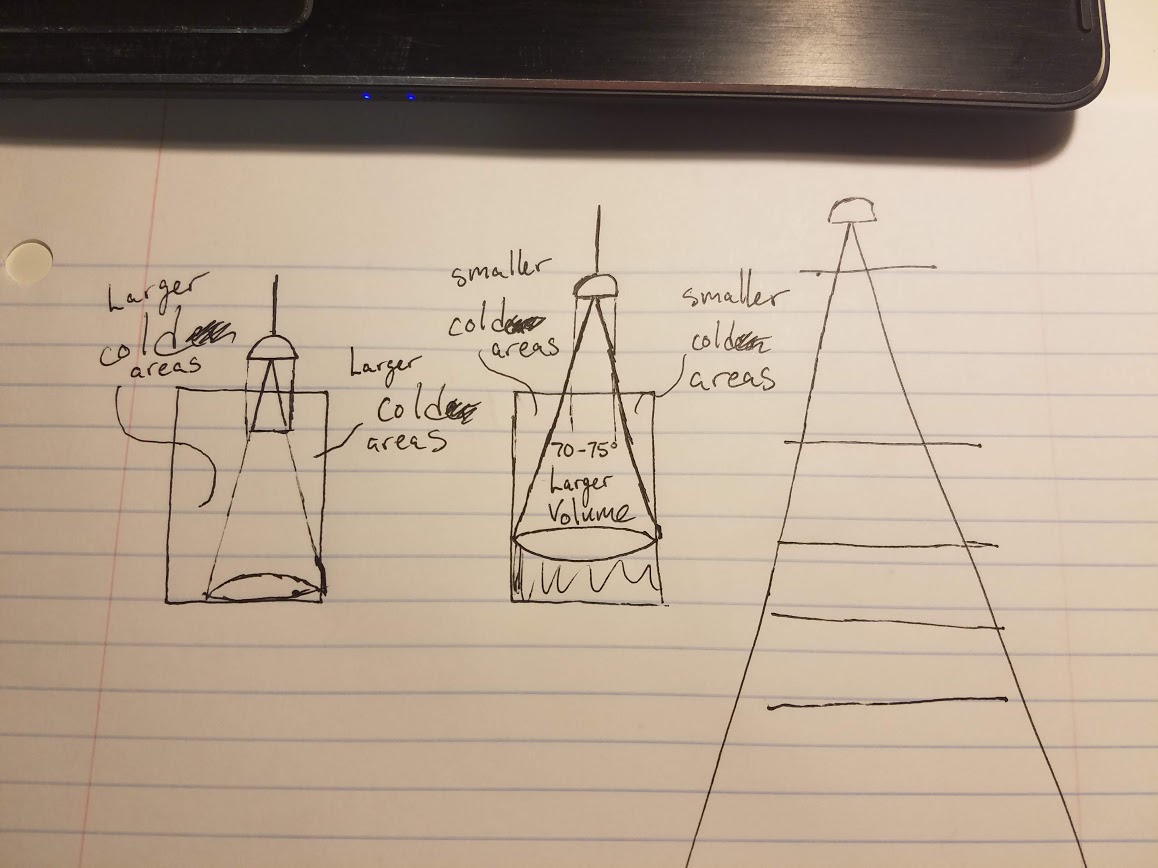 Larger
cold
areas
Larger
cold
areas
smaller
cold
areas
smaller
cold
areas
70-75°
Larger
Volume